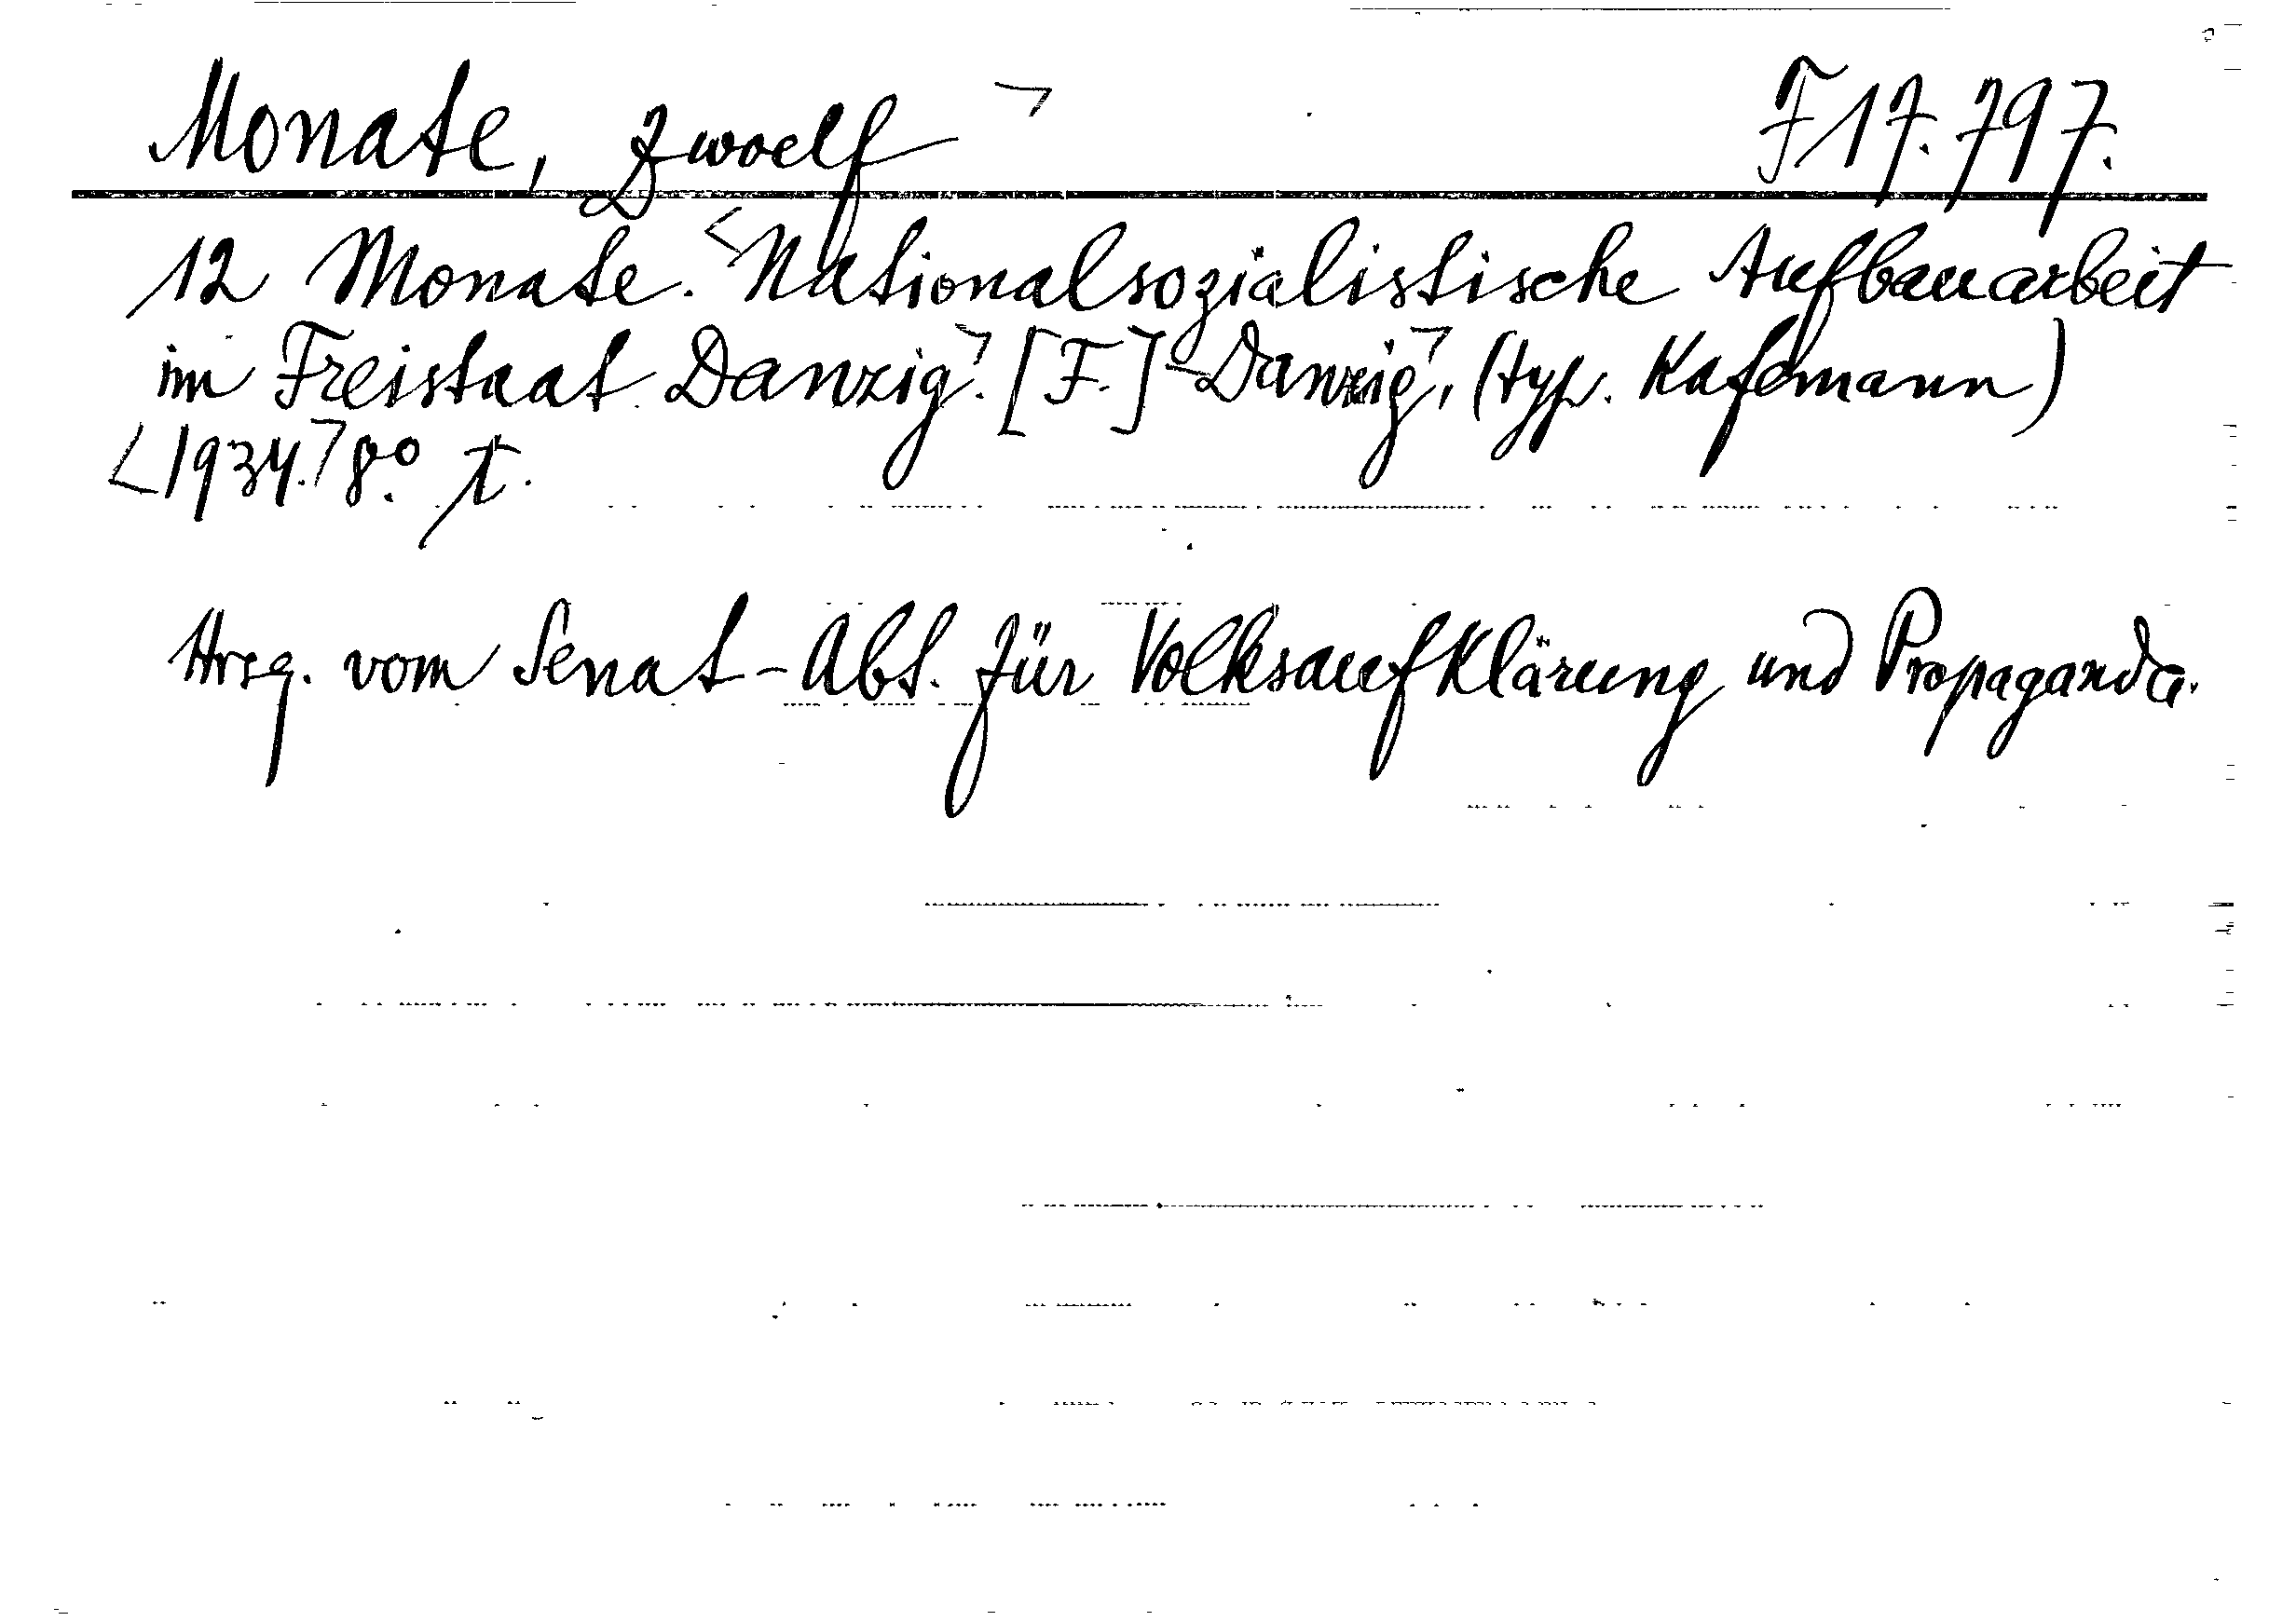 Monate, zwoelf ⌝ F 17.797.
12 Monate. <Nationalsozialistische Aufbauarbeit
im Freistaat Danzig⌝. [F.] - Danzig⌝, (typ. Kafemann)
<1934.⌝ 8.° t.
Hrsg. vom Senat-Abt. für Volksaufklärung und Propaganda.